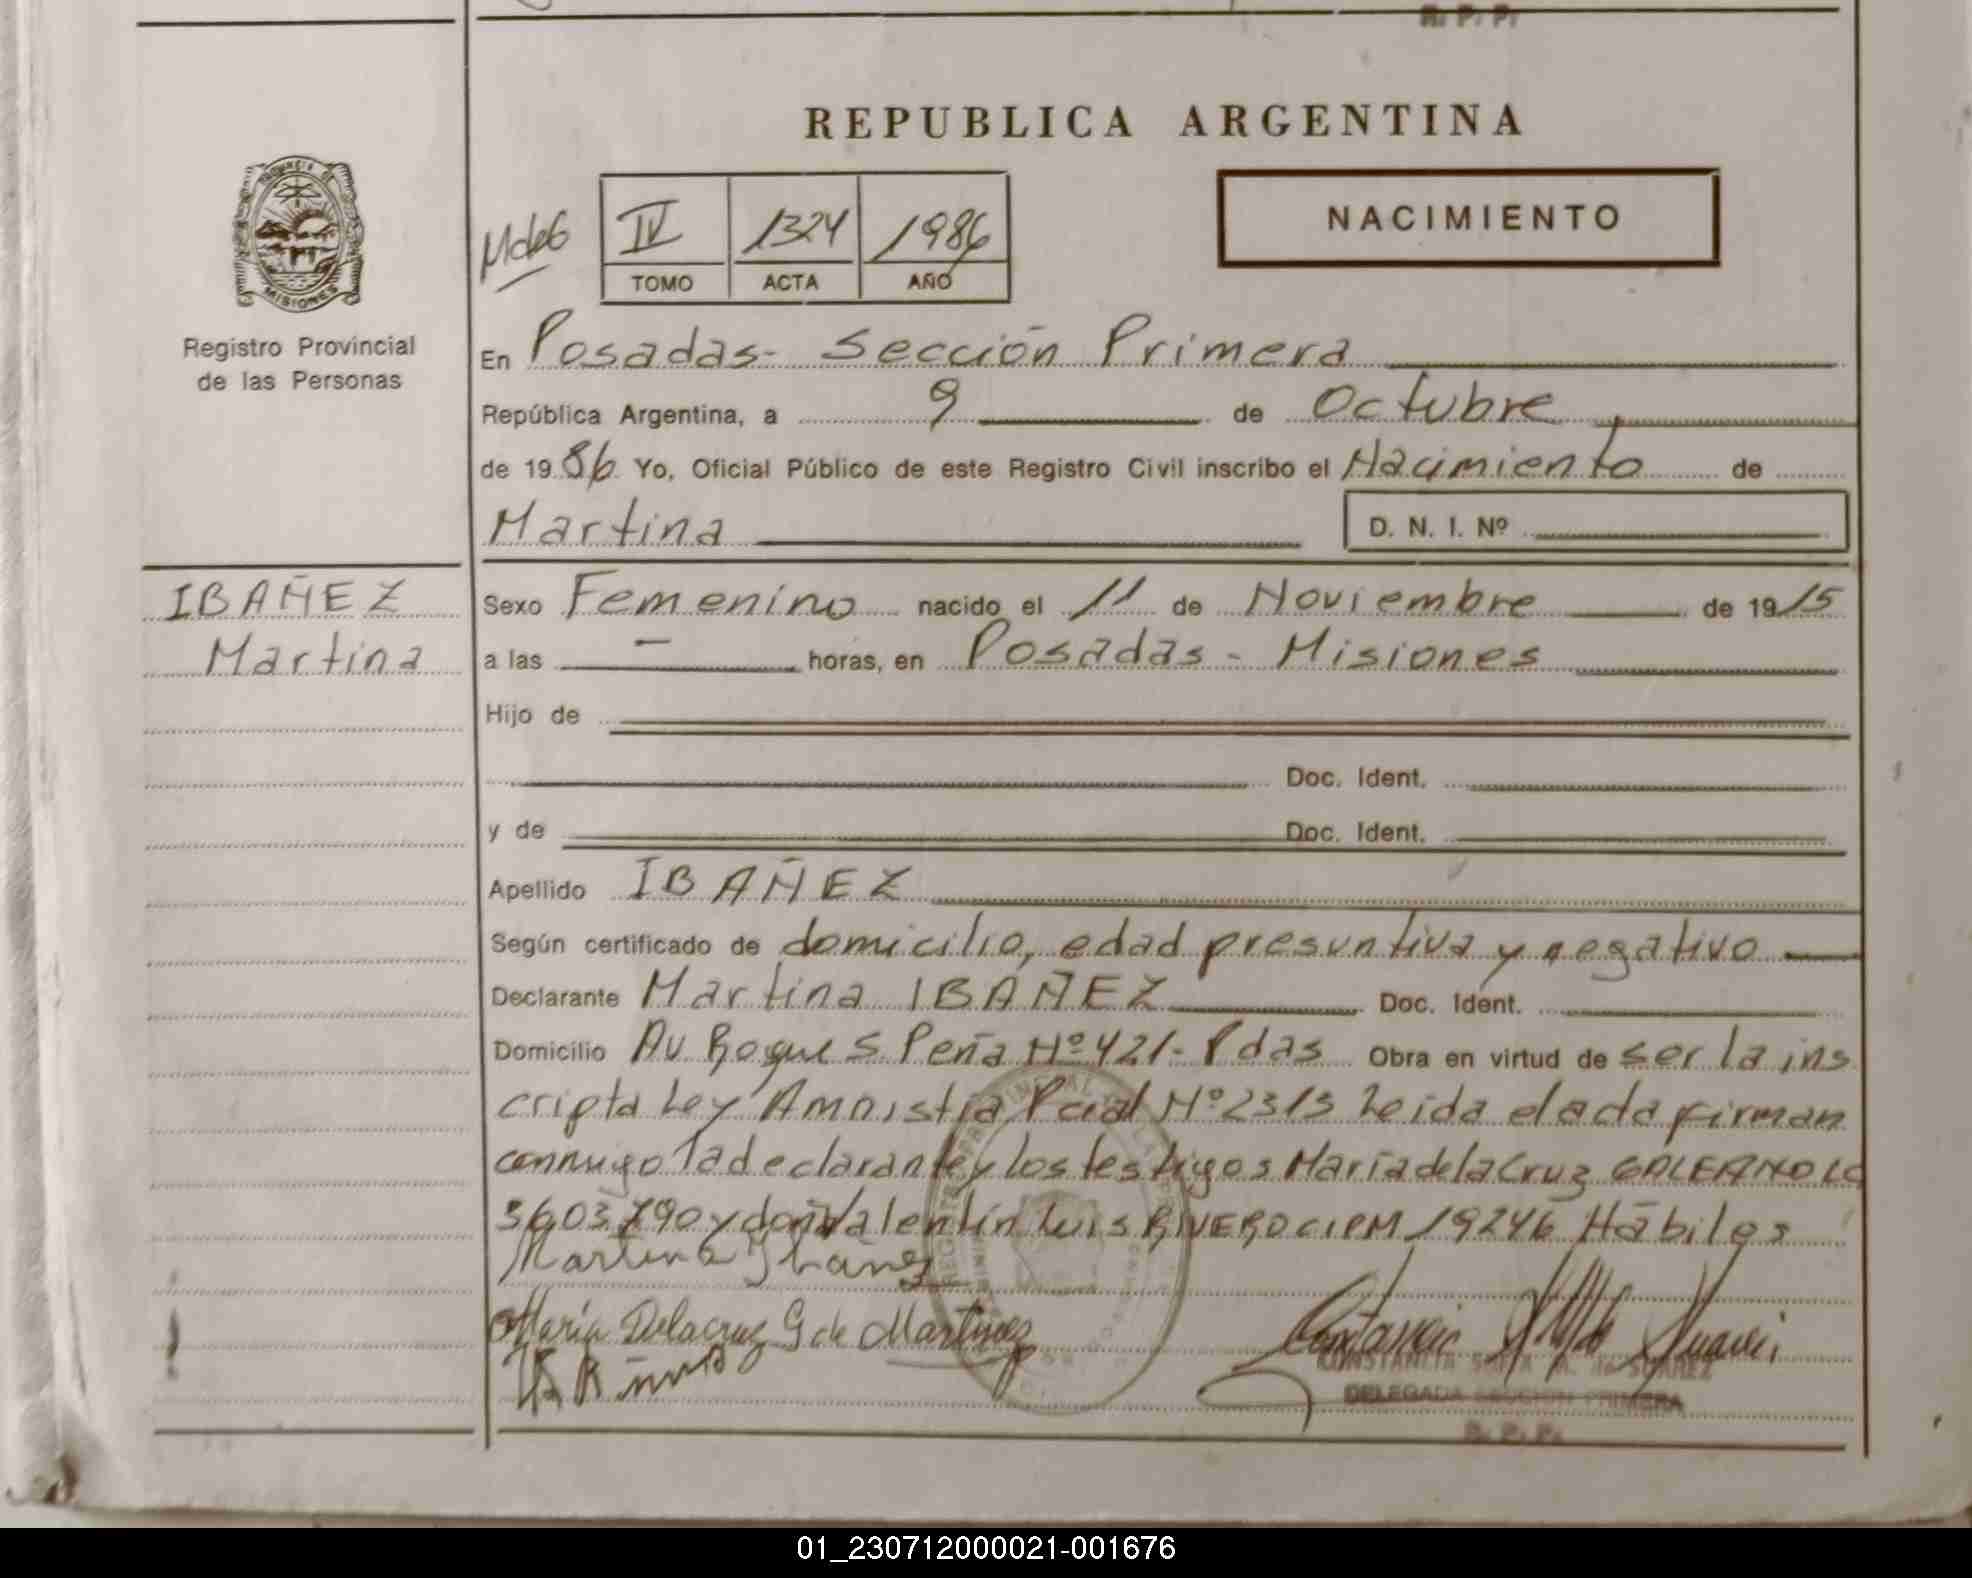 R. P. P.
REPUBLICA ARGENTINA
PROVINCIA DE
MISIONES
Registro Provincial
de las Personas
NACIMIENTO
MdeG
IV 1324 1986
TOMO ACTA AÑO
En Posadas- Sección Primera
República Argentina, a 9 de Octubre
de 1986 Yo, Oficial Público de este Registro Civil inscribo el Nacimiento de
Martina D. N. I. Nº
IBAÑEZ
Martina
Sexo Femenino nacido el 11 de Noviembre de 1915
a las — horas, en Posadas - Misiones
Hijo de
Doc. Ident.
y de Doc. Ident.
Apellido IBAÑEZ
Según certificado de domicilio, edad presuntiva y negativo
Declarante Martina IBAÑEZ Doc. Ident.
Domicilio Av Roque S Peña Nº 421- Pdas Obra en virtud de ser la ins
cripta Ley Amnistia Pcial Nº 2313 Leida el acta firman
conmigo la declarante y los testigos Maria de la Cruz GALEANO LC
3603790 y don Valentín Luis RIVERO CIPM 19246 Hábiles
Martina Ibañez
María Delacruz G de Martinez
CONSTANCIA SOFIA M. de SUAREZ
DELEGADA SECCION PRIMERA
R. P. P.
01_230712000021-001676